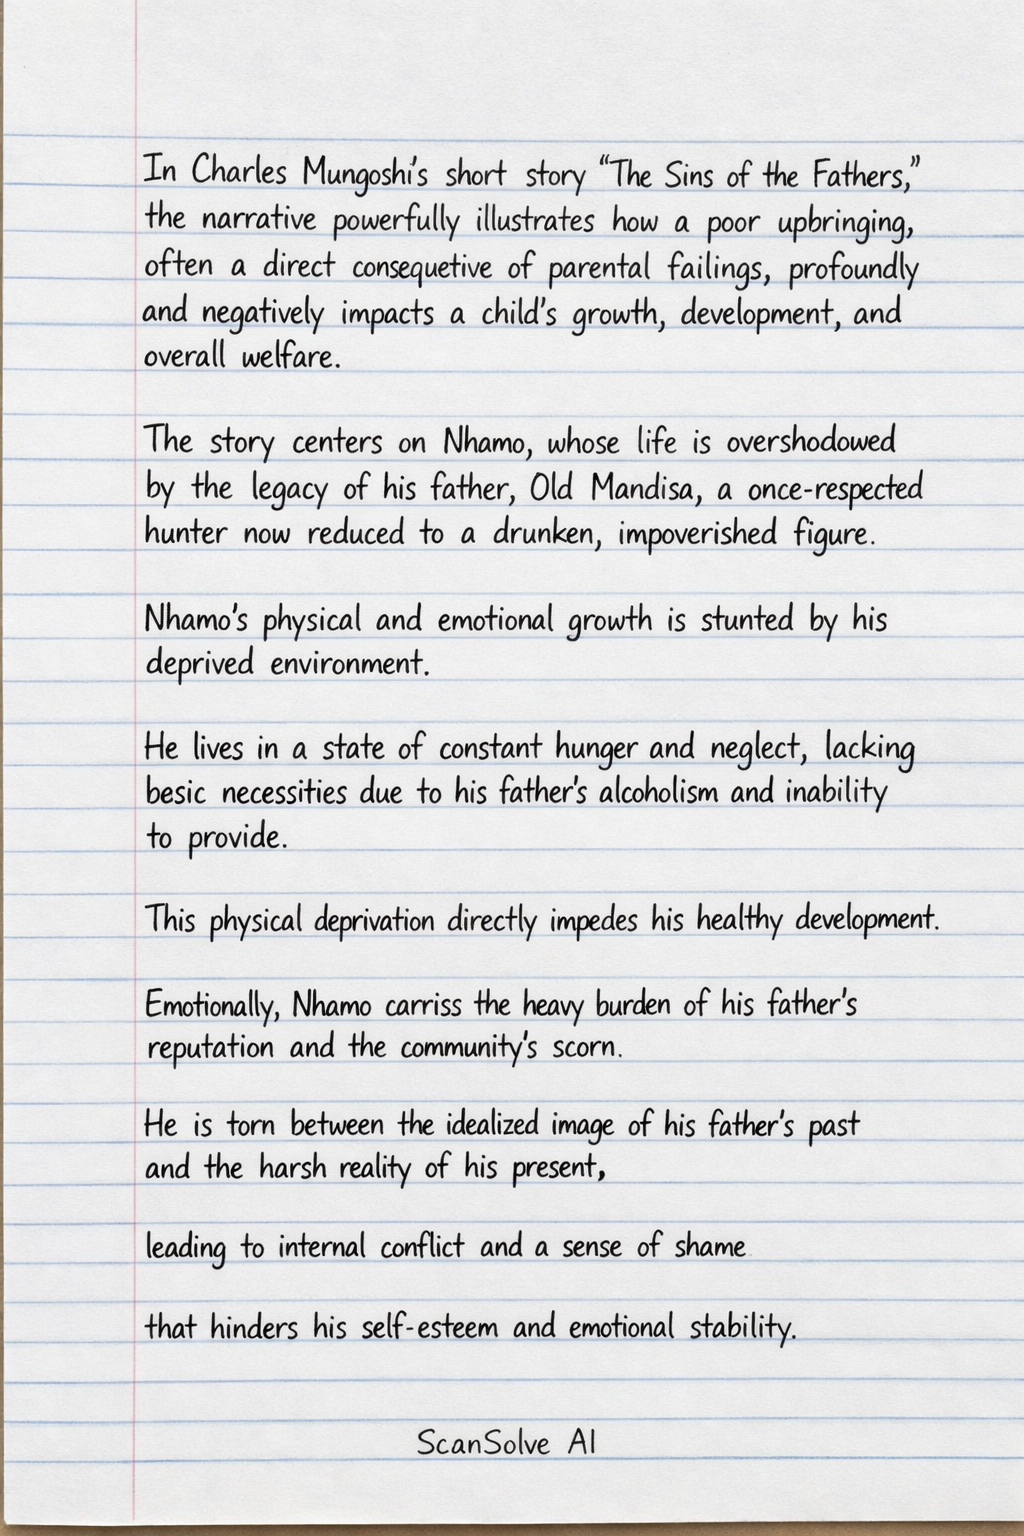 In Charles Mungoshi's short story “The Sins of the Fathers,”
the narrative powerfully illustrates how a poor upbringing,
often a direct consequetive of parental failings, profoundly
and negatively impacts a child's growth, development, and
overall welfare.
The story centers on Nhamo, whose life is overshodowed
by the legacy of his father, Old Mandisa, a once-respected
hunter now reduced to a drunken, impoverished figure.
Nhamo's physical and emotional growth is stunted by his
deprived environment.
He lives in a state of constant hunger and neglect, lacking
besic necessities due to his father's alcoholism and inability
to provide.
This physical deprivation directly impedes his healthy development.
Emotionally, Nhamo carriss the heavy burden of his father's
reputation and the community's scorn.
He is torn between the idealized image of his father's past
and the harsh reality of his present,
leading to internal conflict and a sense of shame
that hinders his self-esteem and emotional stability.
ScanSolve AI